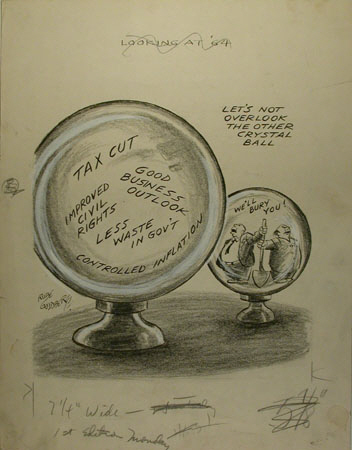 LOOKING AT '64
LET'S NOT
OVERLOOK
THE OTHER
CRYSTAL
BALL
TAX CUT
GOOD
BUSINESS
OUTLOOK
IMPROVED
CIVIL
RIGHTS
LESS
WASTE
IN GOV'T
CONTROLLED INFLATION
WE'LL BURY
YOU!
RUBE
GOLDBERG
7 1/4" Wide —
1st edition Monday